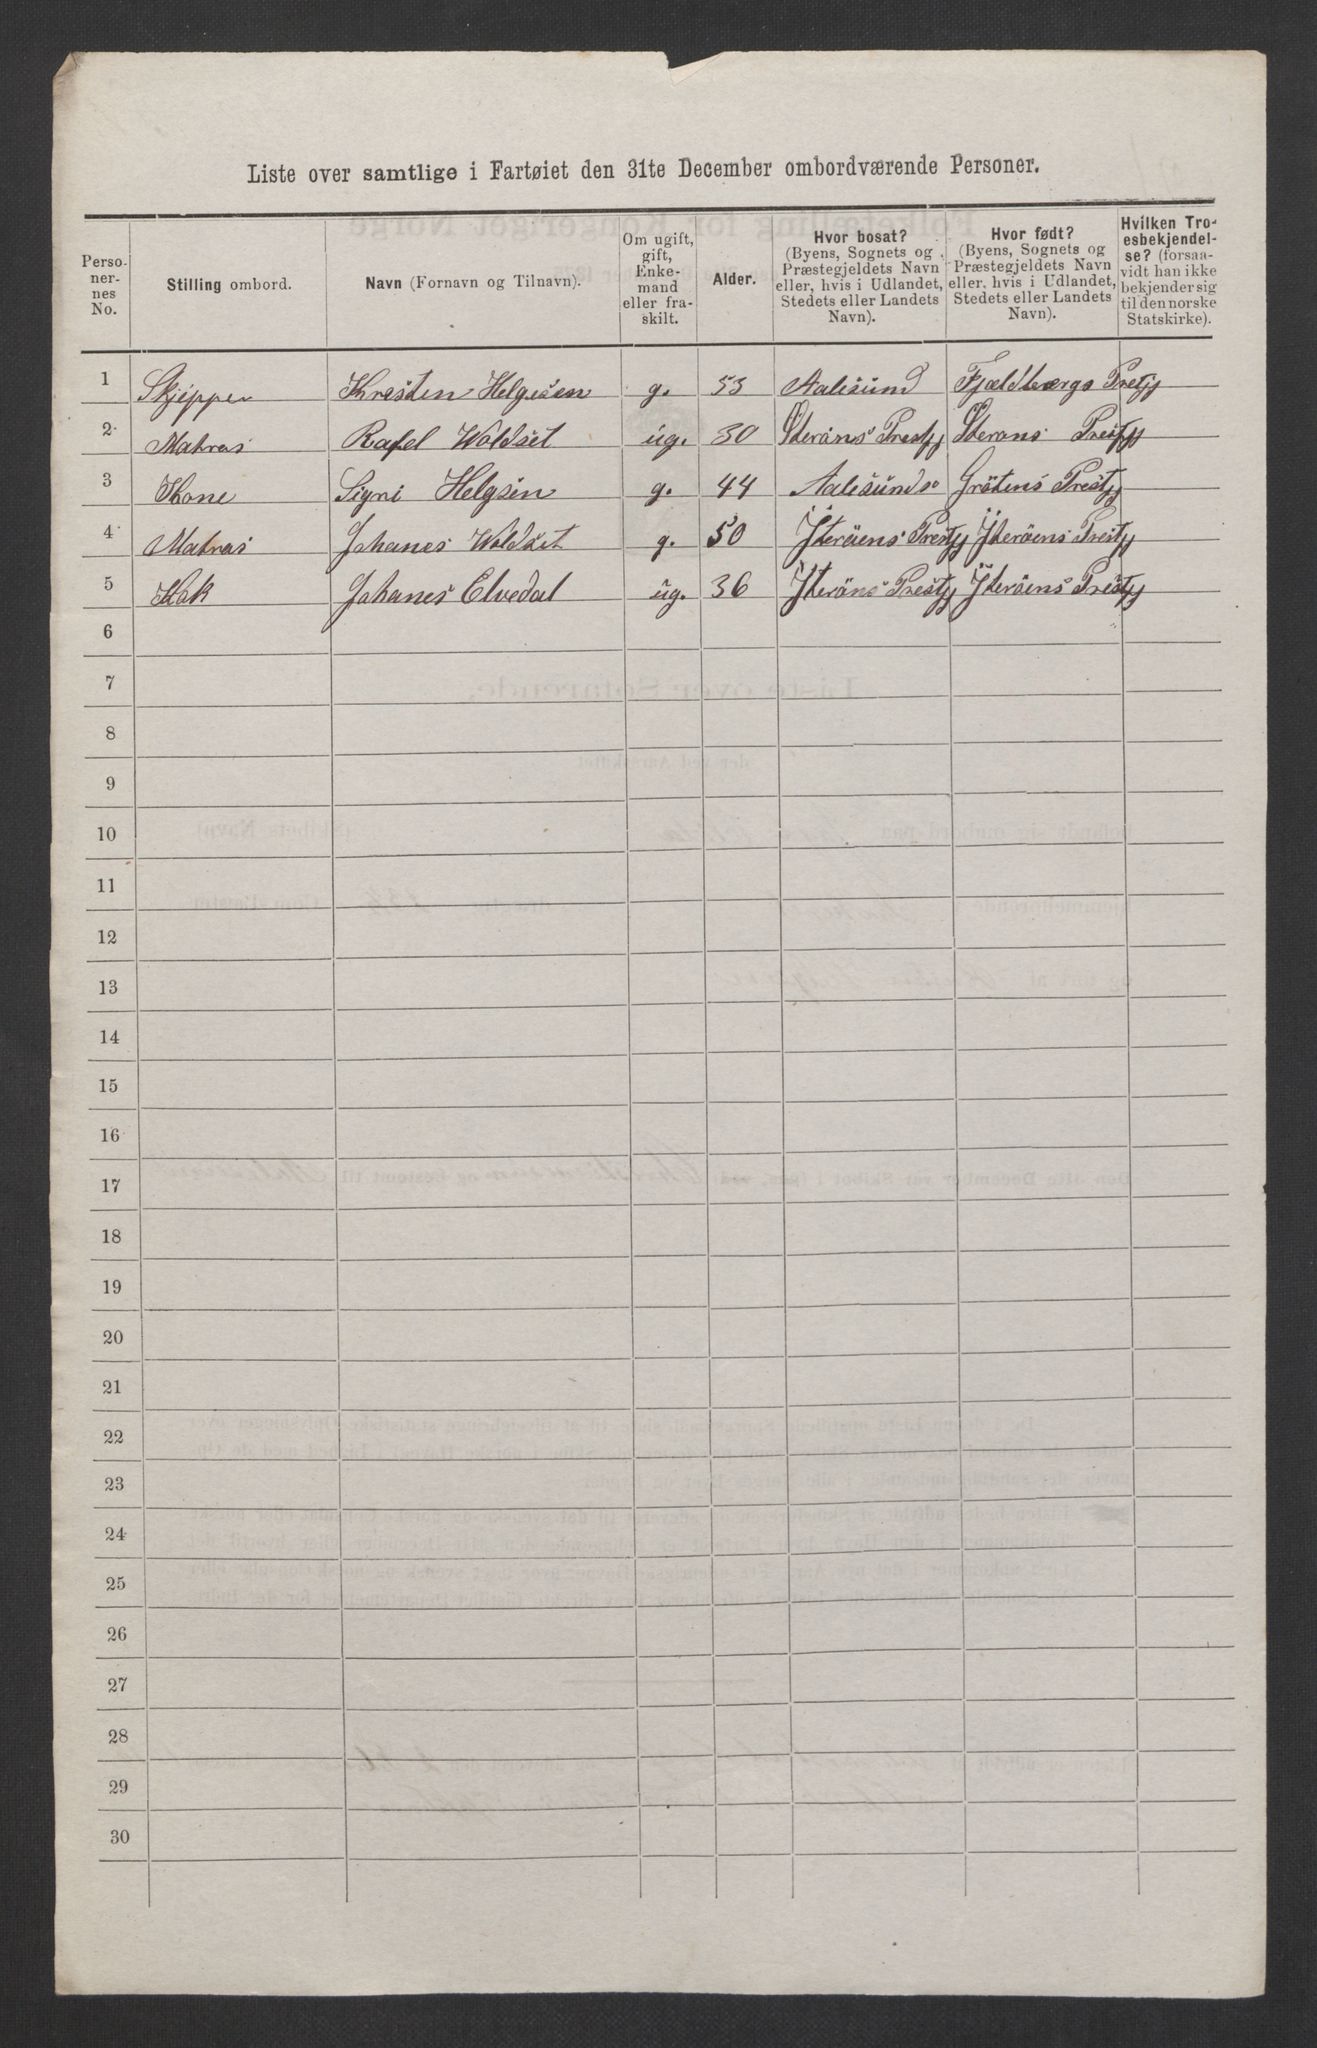 Liste over samtlige i Fartøiet den 31te December ombordværende Personer.
Perso-
ner-
nes
No.
Stilling ombord.
Navn (Fornavn og Tilnavn).
Om ugift,
gift,
Enke-
mand
eller fra-
skilt.
Alder.
Hvor bosat?
(Byens, Sognets og
Præstegjeldets Navn
eller, hvis i Udlandet,
Stedets eller Landets
Navn).
Hvor født?
(Byens, Sognets og
Præstegjeldets Navn
eller, hvis i Udlandet,
Stedets eller Landets
Navn).
Hvilken Tro-
esbekjendel-
se? (forsaa-
vidt han ikke
bekjender sig
til den norske
Statskirke).
1 Skjipper Kristen Helgesen g. 53 Aalesund Fjældbergs Prestjj
2 Matros Rafel Woldset ug. 30 Prestjj Prestjj
3 Kone Signi Helgsen g. 44 Aalesunds Grötens Prestjj
4 Matros Johanes Woldset g. 50 Yteröens Prestjj Yteröens Prestjj
5 Kok Johanes Elvedal ug. 36 Yteröns Prestjj Yteröens Prestjj
6
7
8
9
10
11
12
13
14
15
16
17
18
19
20
21
22
23
24
25
26
27
28
29
30